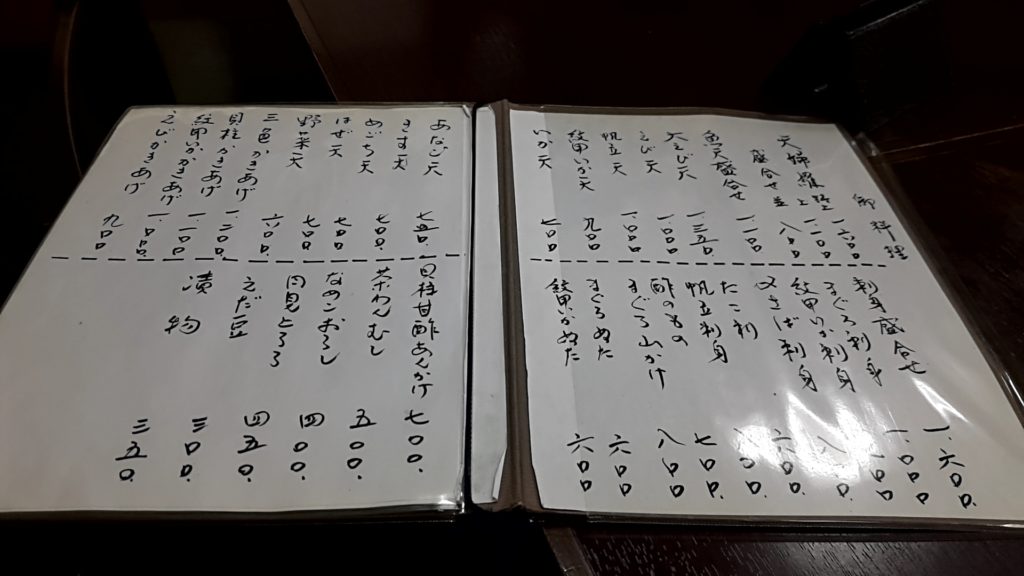 御料理
天婦羅 上 一.六〇〇
盛合せ 並 八〇〇
魚天盛合せ 一.一〇〇
大えび天 一.三五〇
えび天 一.〇〇〇
帆立天 一.〇〇〇
紋甲いか天 九〇〇
いか天 七〇〇
刺身盛合せ 一.六〇〇.
まぐろ刺身 一.〇〇〇
紋甲いか刺身
〆さば刺身 八〇〇.
たこ刺 六〇〇.
帆立刺身
酢のもの 七〇〇.
まぐろ山かけ 八〇〇
まぐろぬた 六〇〇
紋甲いかぬた 六〇〇
あなご天 七五〇.
きす天 七〇〇.
めごち天 七〇〇
はぜ天 七〇〇
野菜天 六〇〇.
三色かきあげ 一.二〇〇.
貝柱かきあげ 一.一〇〇
紋甲いかかきあげ 一.〇〇〇.
えびかきあげ 九〇〇.
貝柱甘酢あんかけ 七〇〇.
茶わんむし 五〇〇.
なめこおろし 四〇〇.
月見とろろ 四五〇.
えだ豆 三〇〇.
漬物 三五〇.